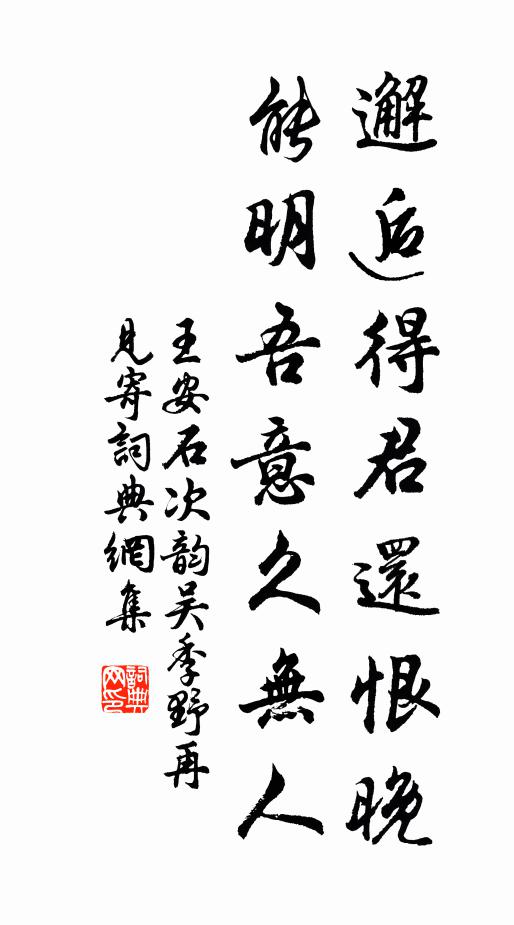 邂逅得君還恨晚
能明吾意久無人
王安石次韵吴季野再
見寄詞典網集
詞典
网印